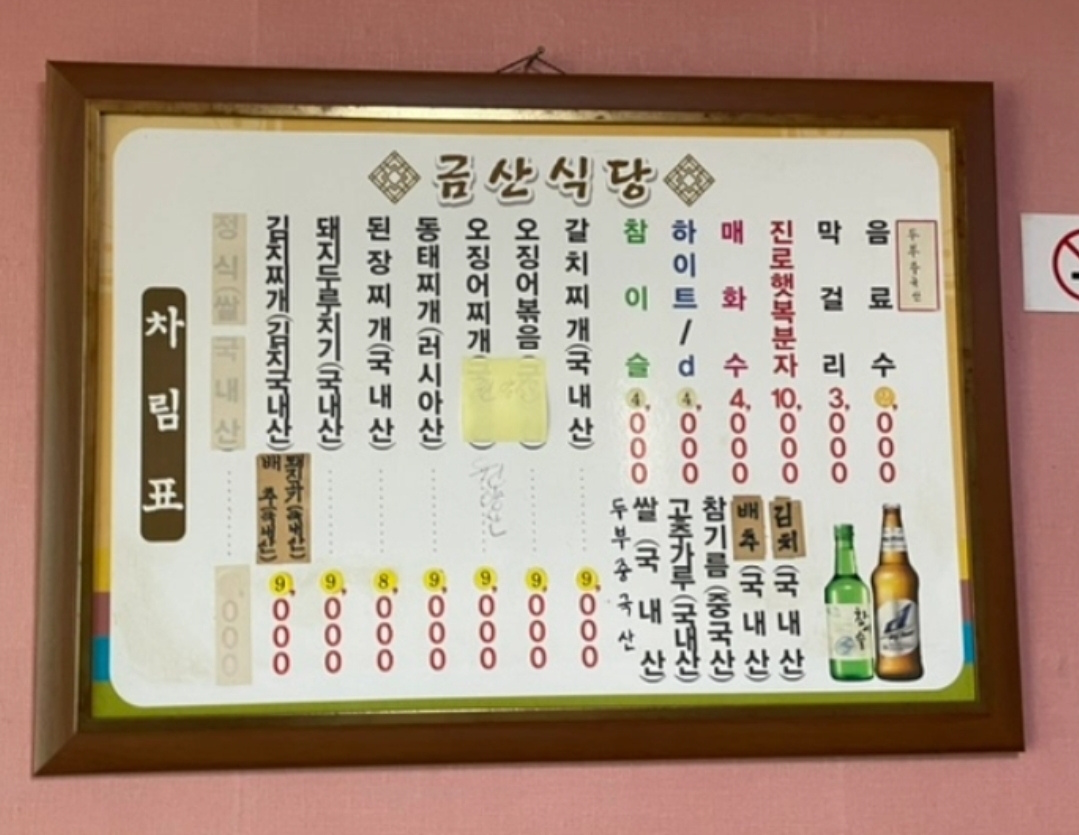 금산식당
차림표
정식(쌀국내산) ,000
김치찌개(김치국내산) 9,000
돼지고기(국내산)
배추(국내산)
돼지두루치기(국내산) 9,000
된장찌개(국내산) 8,000
동태찌개(러시아산) 9,000
오징어찌개 9,000
원양산
오징어볶음 9,000
갈치찌개(국내산) 9,000
참이슬 4,000
하이트/d 4,000
매화수 4,000
진로햇복분자 10,000
막걸리 3,000
음료수 ,000
두부중국산
두부중국산
쌀(국내산)
고춧가루(국내산)
참기름(중국산)
배추(국내산)
김치(국내산)